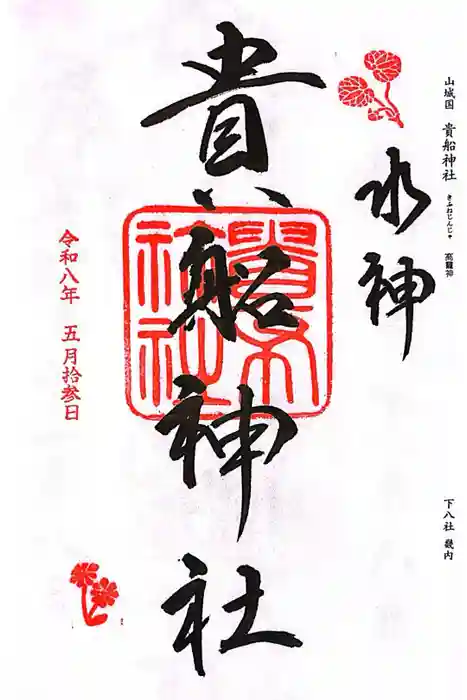 山城国 貴船神社 高龗神
きふねじんじゃ
下八社 畿内
水神
貴船神社
令和八年 五月拾参日